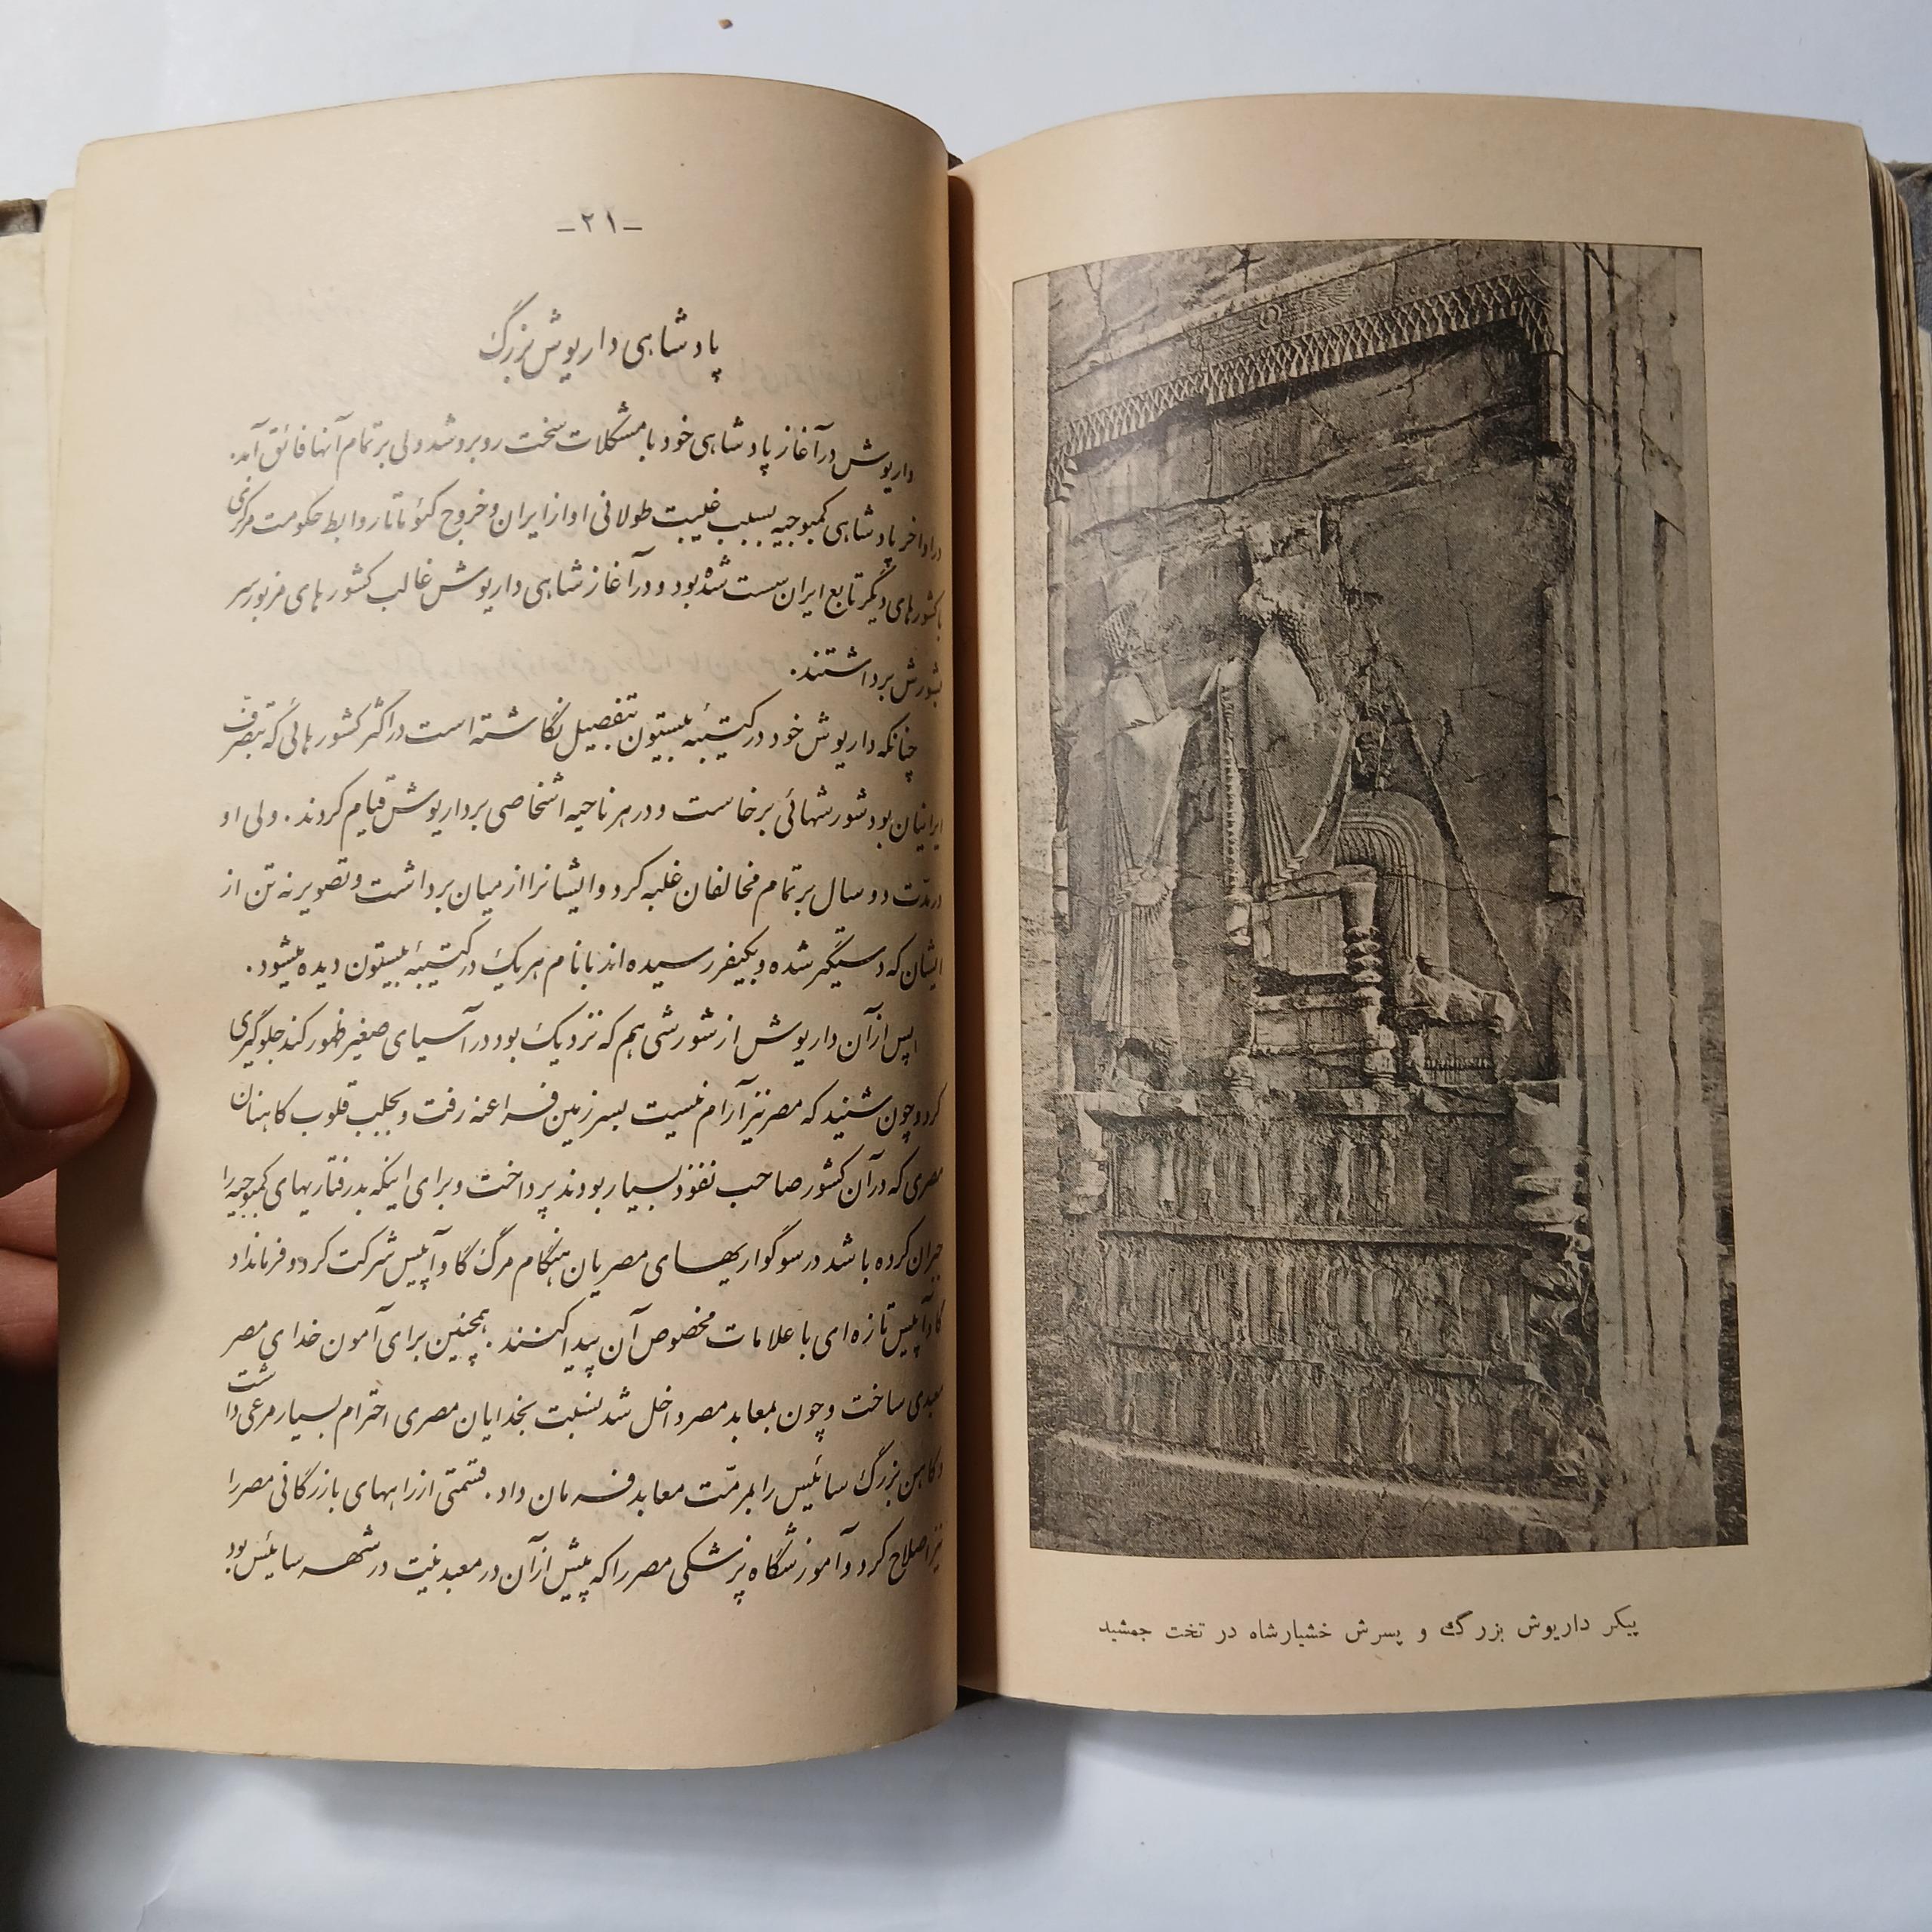 -۲۱-
پادشاهی داریوش بزرگ
داریوش در آغاز پادشاهی خود با مشکلات سخت روبرو شد ولی بر تمام آنها فائق آمد.
در اواخر پادشاهی کمبوجیه بسبب غیبت طولانی او از ایران و خروج گئوماتا روابط حکومت مرکزی
با کشورهای دیگر تابع ایران سست شده بود و در آغاز شاهی داریوش غالب کشورهای مزبور سر
بشورش برداشتند.
چنانکه داریوش خود در کتیبهٔ بیستون بتفصیل نگاشته است در اکثر کشورهائی که بتصرف
ایرانیان بود شورشهائی برخاست و در هر ناحیه اشخاصی بر داریوش قیام کردند. ولی او
در مدّت دو سال بر تمام مخالفان غلبه کرد و ایشانرا از میان برداشت و تصویر نه تن از
ایشان که دستگیر شده و بکیفر رسیده اند با نام هر یک در کتیبهٔ بیستون دیده میشود.
پس از آن داریوش از شورشی هم که نزدیک بود در آسیای صغیر ظهور کند جلوگیری
کرد و چون شنید که مصر نیز آرام نیست بسرزمین فراعنه رفت و بجلب قلوب کاهنان
مصری که در آن کشور صاحب نفوذ بسیار بودند پرداخت و برای اینکه بدرفتاریهای کمبوجیه را
جبران کرده باشد در سوگواریهای مصریان هنگام مرگ گاو آپیس شرکت کرد و فرمانداد
گاو آپیس تازه ای با علامات مخصوص آن پیدا کنند. همچنین برای آمون خدای مصر
معبدی ساخت و چون بمعابد مصر داخل شد نسبت بخدایان مصری احترام بسیار مرعی داشت
و کاهن بزرگ سائیس را بمرمّت معابد فرمان داد. قسمتی از راههای بازرگانی مصر را
نیز اصلاح کرد و آموزشگاه پزشکی مصر را که پیش از آن در معبد نیت در شهر سائیس بود
پیکر داریوش بزرگ و پسرش خشیارشاه در تخت جمشید